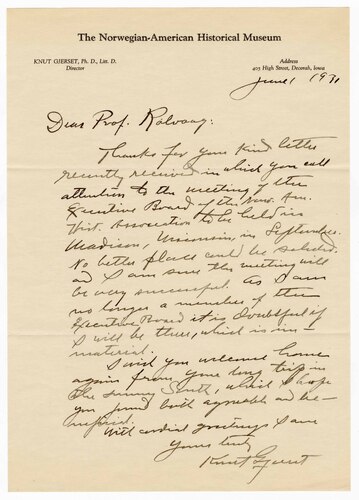 The Norwegian-American Historical Museum
KNUT GJERSET, Ph. D., Litt. D.
Director
Address
405 High Street, Decorah, Iowa
June 1 1931
Dear Prof. Rolvaag:
Thanks for your kind letter
recently received in which you call
attention to the meeting of the
Executive Board of the Norw. Am.
Hist. Association to be held in
Madison, Wisconsin, in September.
No better place could be selected.
and I am sure the meeting will
be very successful. As I am
no longer a member of the
Executive Board it is doubtful if
I will be there, which is im-
material.
I wish you welcome home
again from your long trip in
the sunny South, which I hope
you found both agreeable and
With cordial greetings I am
Yours truly
Knut Gjerset